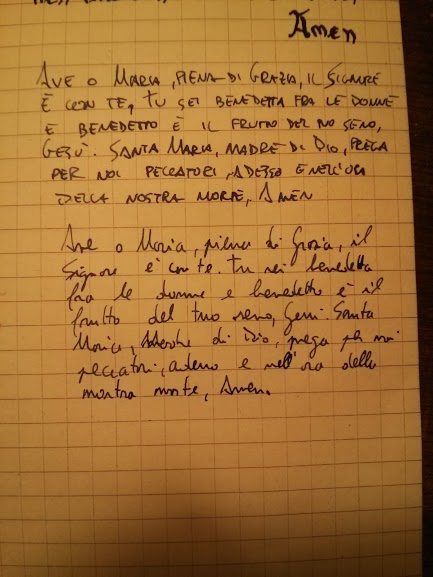 Amen
Ave o Maria, piena di Grazia, il Signore
è con te, tu sei benedetta fra le donne
e benedetto è il frutto del tuo seno,
Gesù. Santa Maria, madre di Dio, prega
per noi peccatori, adesso e nell'ora
della nostra morte, Amen
Ave o Maria, piena di Grazia, il
Signore è con te. Tu sei benedetta
fra le donne e benedetto è il
frutto del tuo seno, Gesù. Santa
Maria, Madre di Dio, prega per noi
peccatori, adesso e nell'ora della
nostra morte, Amen.